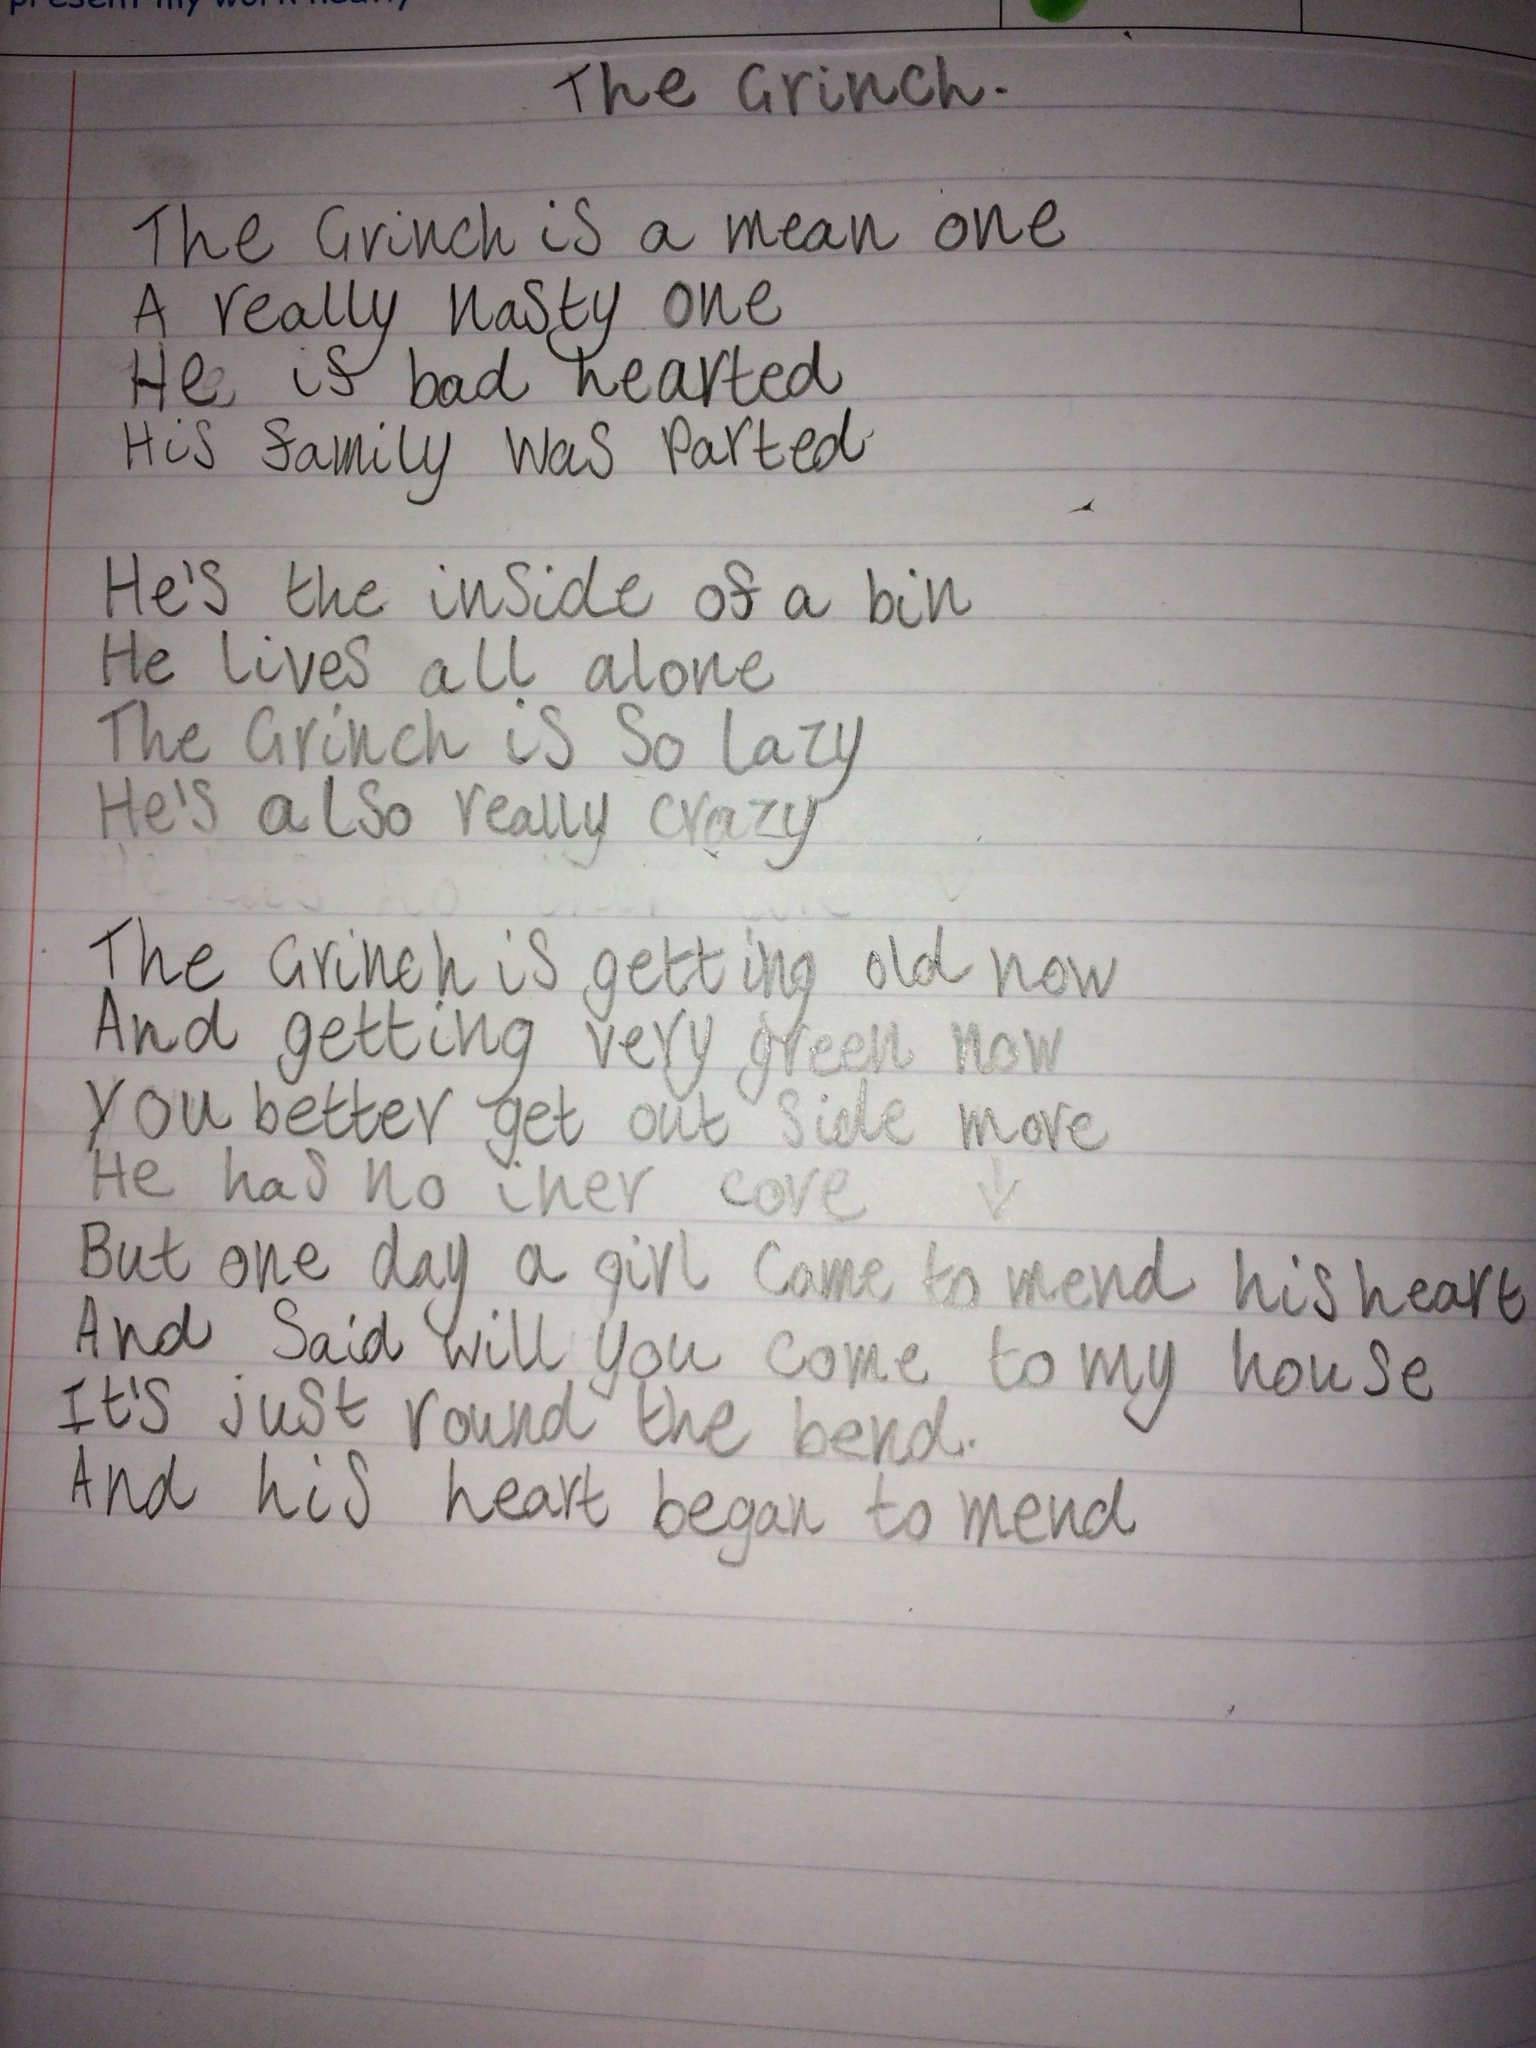 present my work neatly
The Grinch.
The Grinch is a mean one
A really nasty one
He is bad hearted
His family was parted
He's the inside of a bin
He lives all alone
The Grinch is so lazy
He's also really crazy
The Grinch is getting old now
And getting very green now
You better get out side more
He has no iner core ↓
But one day a girl came to mend his heart
And said will you come to my house
It's just round the bend.
And his heart began to mend